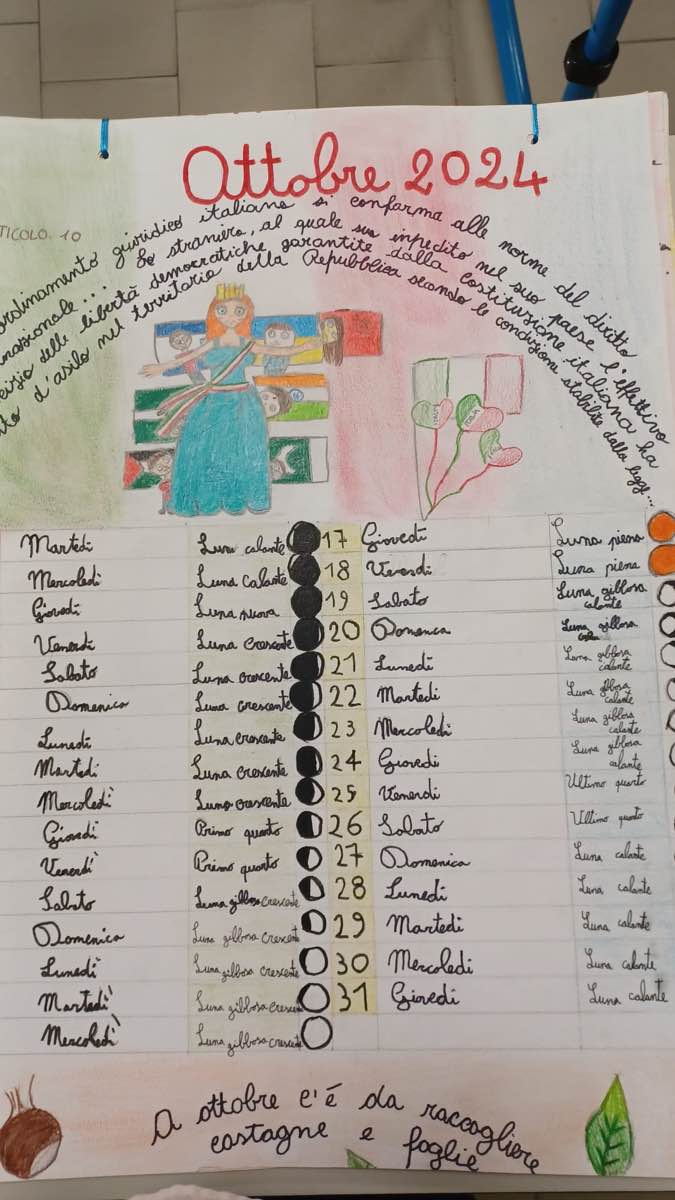 Ottobre 2024
TICOLO. 10
ordinamento giuridico italiano si conforma alle norme del diritto
nazionale... Lo straniero, al quale sia inpedito nel suo paese l'effettivo
cizio delle libertà democratiche garantite dalla costituzione italiana ha
tto d'asilo nel territorio della Repubblica secondo le condizioni stabilite dalla legge...
Martedì Luna calante 17 Giovedì Luna piena
Mercoledì Luna calante 18 Venerdì Luna piena
Giovedì Luna nuova 19 Sabato Luna gibbosa calante
Venerdì Luna crescente 20 Domenica Luna gibbosa
Sabato Luna crescente 21 Lunedì Luna gibbosa calante
Domenica Luna crescente 22 Martedì Luna gibbosa calante
Lunedì Luna crescente 23 Mercoledì Luna gibbosa calante
Martedì Luna crescente 24 Giovedì Luna gibbosa calante
Mercoledì Luna crescente 25 Venerdì Ultimo quarto
Giovedì Primo quarto 26 Sabato Ultimo quarto
Venerdì Primo quarto 27 Domenica Luna calante
Sabato Luna gibbosa crescente 28 Lunedì Luna calante
Domenica Luna gibbosa crescente 29 Martedì Luna calante
Lunedì Luna gibbosa crescente 30 Mercoledì Luna calante
Martedì Luna gibbosa crescen 31 Giovedì Luna calante
Mercoledì Luna gibbosa crescente
A ottobre c'é da raccogliere
castagne e foglie